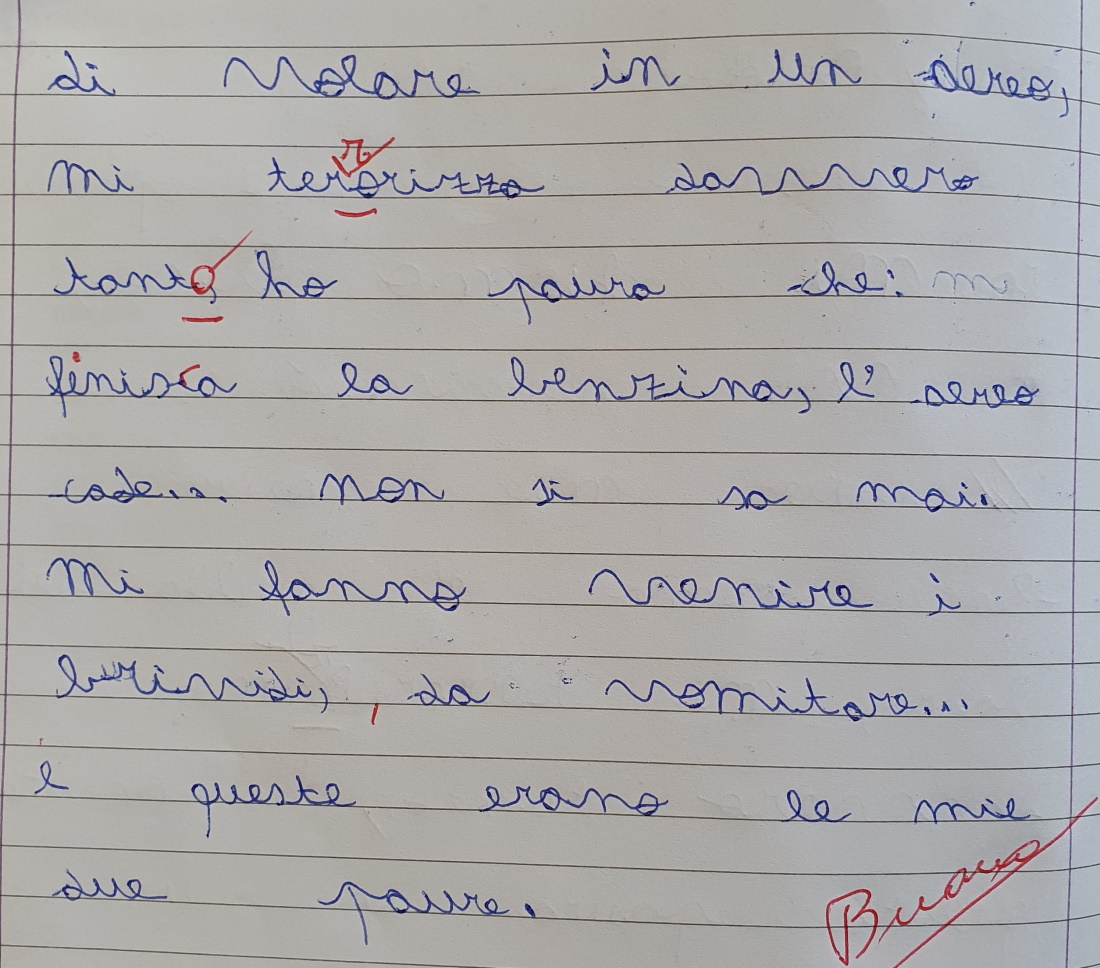 di volare in un aereo,
r
mi terorizzo davvero
tanto, ho paura che: m
finisca la benzina, l'aereo
cade... non si sa mai.
Mi fanno venire i
brividi, , da vomitare...
e queste erano le mie
due paure.
Buono